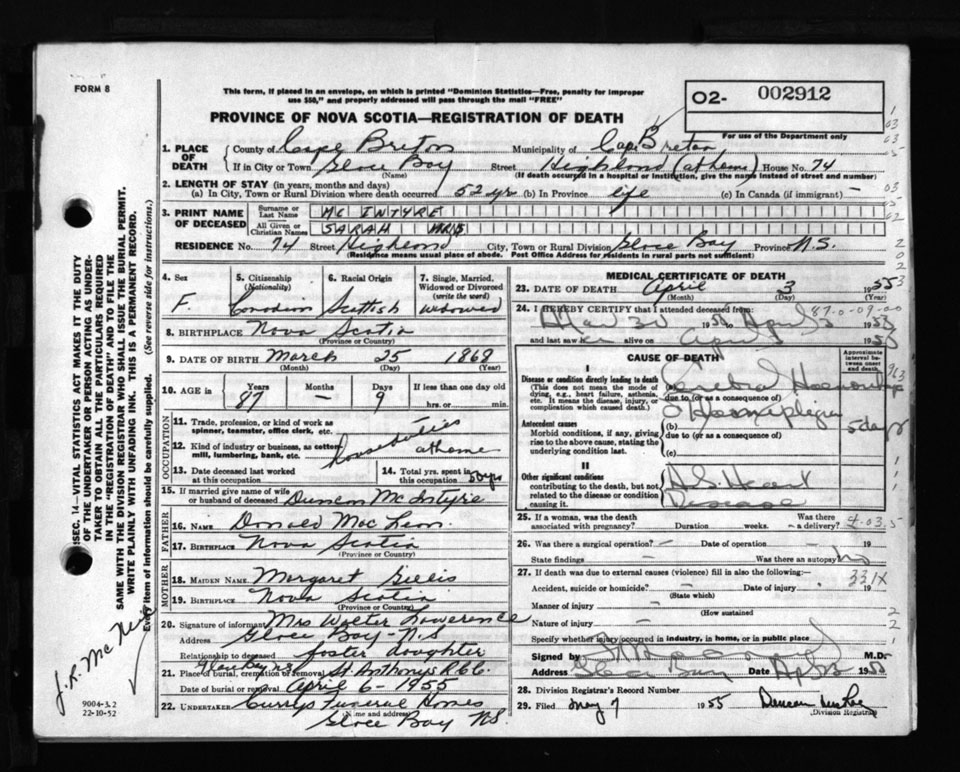 FORM 8
This form, if placed in an envelope, on which is printed "Dominion Statistics—Free, penalty for improper
use $50," and properly addressed will pass through the mail "FREE"
O2- 002912
For use of the Department only
PROVINCE OF NOVA SCOTIA—REGISTRATION OF DEATH
1. PLACE OF DEATH County of Cape Breton Municipality of Cape Breton
If in City or Town Glace Bay Street Highland (at home) House No. 74
(Name) (If death occurred in a hospital or institution, give the name instead of street and number)
2. LENGTH OF STAY (in years, months and days)
(a) In City, Town or Rural Division where death occurred 52 yr (b) In Province life (c) In Canada (if immigrant) —
3. PRINT NAME OF DECEASED Surname or Last Name MC INTYRE
All Given or Christian Names SARAH MRS
RESIDENCE No. 74 Street Highland City, Town or Rural Division Glace Bay Province N.S.
(Residence means usual place of abode. Post Office Address for residents in rural parts not sufficient)
4. Sex F.
5. Citizenship (Nationality) Canadian
6. Racial Origin Scottish
7. Single, Married, Widowed or Divorced (write the word) Widowed
8. BIRTHPLACE Nova Scotia
(Province or Country)
9. DATE OF BIRTH March 25 1868
(Month) (Day) (Year)
10. AGE in Years 87 Months — Days 9 If less than one day old hrs. or min.
OCCUPATION
11. Trade, profession, or kind of work as spinner, teamster, office clerk, etc. house duties
12. Kind of industry or business, as cotton mill, lumbering, bank, etc. at home
13. Date deceased last worked at this occupation
14. Total yrs. spent in this occupation
15. If married give name of wife or husband of deceased Duncan McIntyre
FATHER
16. NAME Donald Mac Lean
17. BIRTHPLACE Nova Scotia
(Province or Country)
MOTHER
18. MAIDEN NAME Margaret Gillis
19. BIRTHPLACE Nova Scotia
(Province or Country)
20. Signature of informant Mrs Walter Lowerence
Address Glace Bay - N.S
Relationship to deceased foster daughter
21. Place of burial, cremation or removal Glace Bay N.S St. Anthonys R.C.C.
Date of burial or removal April 6 - 1955
22. UNDERTAKER Currys Funeral Homes
(Name and address) Glace Bay N.S.
MEDICAL CERTIFICATE OF DEATH
23. DATE OF DEATH April 3 1955
(Month) (Day) (Year)
24. I HEREBY CERTIFY that I attended deceased from:
87-0-09-00
and last saw h alive on April
CAUSE OF DEATH
Approximate interval between onset and death
I
Disease or condition directly leading to death
(This does not mean the mode of dying, e.g., heart failure, asthenia, etc. It means the disease, injury, or complication which caused death.)
(a) Cerebral Hemorrhage
due to (or as a consequence of)
Antecedent causes
Morbid conditions, if any, giving rise to the above cause, stating the underlying condition last.
(b) Hemiplegia 5 days
due to (or as a consequence of)
(c)
II
Other significant conditions
contributing to the death, but not related to the disease or condition causing it.
A.S. Heart
Disease
25. If a woman, was the death associated with pregnancy? Duration weeks. Was there a delivery?
26. Was there a surgical operation? — Date of operation — 19
State findings — Was there an autopsy? No
27. If death was due to external causes (violence) fill in also the following:
331X
Accident, suicide or homicide? — Date of injury 19
(State which)
Manner of injury —
(How sustained)
Nature of injury —
Specify whether injury occurred in industry, in home, or in public place
Signed by M.D.
Address Glace Bay Date
28. Division Registrar's Record Number
29. Filed May 7 1955 Duncan
Division Registrar
SEC. 14—VITAL STATISTICS ACT MAKES IT THE DUTY
OF THE UNDERTAKER OR PERSON ACTING AS UNDER-
TAKER TO OBTAIN ALL THE PARTICULARS REQUIRED
IN THE "REGISTRATION OF DEATH" AND TO FILE THE
SAME WITH THE DIVISION REGISTRAR WHO SHALL ISSUE THE BURIAL PERMIT.
WRITE PLAINLY WITH UNFADING INK. THIS IS A PERMANENT RECORD.
Every item of information should be carefully supplied. (See reverse side for instructions.)
J.R. Mc Neil
9004-3.2
22-10-52